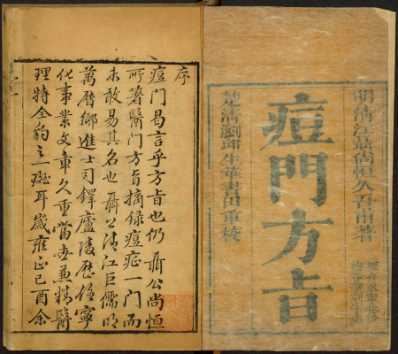 明清江聶尚恒久吾甫著
痘門方旨
書田重校
序
痘門曷言乎方旨也仍聶公尚恒
所著醫門方旨摘錄痘症一門而
未敢易其名也聶公清江巨儒明
萬曆鄉進士司鐸廬陵歷任寧
化事業文章久重當世兼精醫
理特全豹之一斑耳歲雍正己酉余